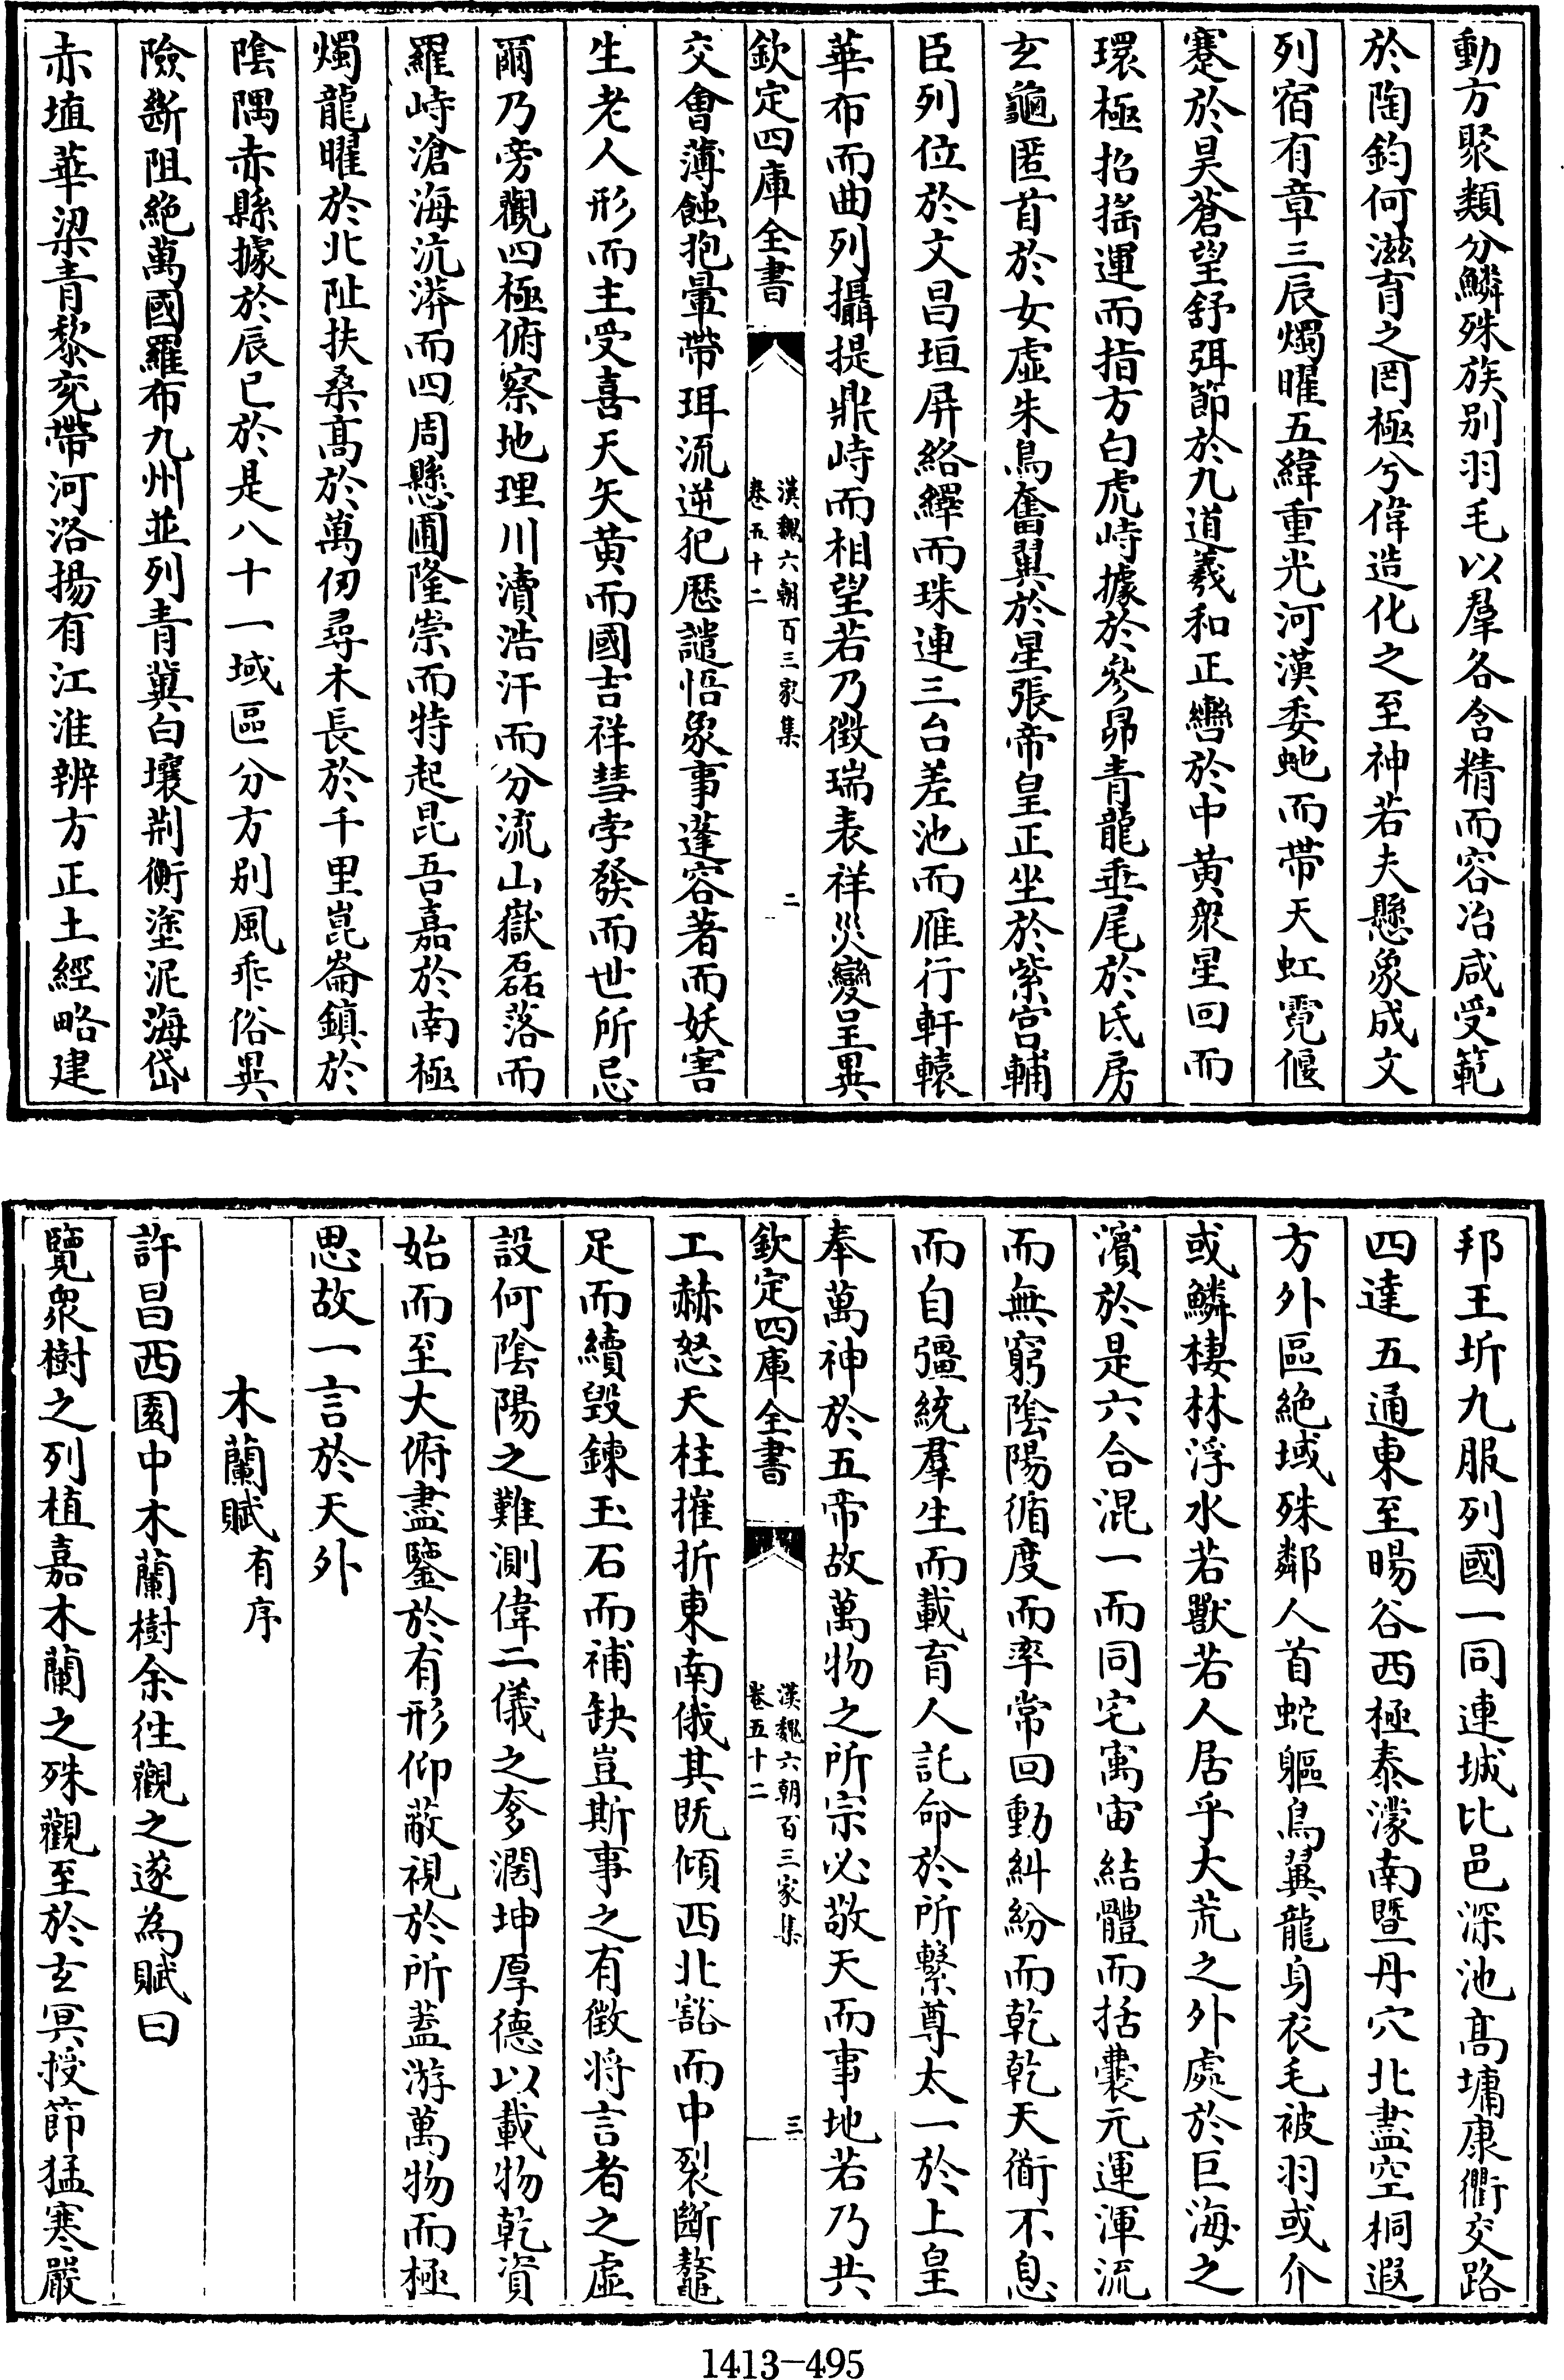 動方聚類分鱗殊族别羽毛以羣各含精而容冶咸受範
於陶鈞何滋育之罔極兮偉造化之至神若夫懸象成文
列宿有章三辰燭曜五緯重光河漢委虵而帶天虹霓偃
蹇於昊蒼望舒弭節於九道羲和正轡於中黄衆星回而
環極招揺運而指方白虎峙據於參昴青龍垂尾於氐房
玄龜匿首於女虚朱鳥奮翼於星張帝皇正坐於紫宫輔
臣列位於文昌垣屏絡繹而珠連三台差池而雁行軒轅
華布而曲列攝提鼎峙而相望若乃徴瑞表祥災變呈異
欽定四庫全書
漢魏六朝百三家集
卷五十二
二
交會薄蝕抱暈帶珥流逆犯歷譴悟象事蓬容著而妖害
生老人形而主受喜天矢黄而國吉祥彗孛發而世所忌
爾乃旁觀四極俯察地理川瀆浩汗而分流山嶽磊落而
羅峙滄海沆漭而四周懸圃隆崇而特起昆吾嘉於南極
燭龍曜於北阯扶桑髙於萬仞尋木長於千里崑崙鎮於
隂隅赤縣據於辰巳於是八十一域區分方别風乖俗異
險斷阻絶萬國羅布九州並列青冀白壤荆衡塗泥海岱
赤埴華梁青黎兖帶河洛揚有江淮辨方正土經略建
邦王圻九服列國一同連城比邑深池髙墉康衢交路
四達五通東至暘谷西極泰濛南暨丹穴北盡空桐遐
方外區絶域殊鄰人首蛇軀鳥翼龍身衣毛被羽或介
或鱗棲林浮水若獸若人居乎大荒之外處於巨海之
濱於是六合混一而同宅寓宙結體而括囊元運渾流
而無窮隂陽循度而率常回動糾紛而乾乾天衜不息
而自彊統羣生而載育人託命於所繫尊太一於上皇
奉萬神於五帝故萬物之所宗必敬天而事地若乃共
欽定四庫全書
漢魏六朝百三家集
卷五十二
三
工赫怒天柱摧折東南俄其既傾西北豁而中裂斷鼇
足而續毁鍊玉石而補缺豈斯事之有徴將言者之虚
設何隂陽之難測偉二儀之奓濶坤厚德以載物乾資
始而至大俯盡鑒於有形仰蔽視於所蓋游萬物而極
思故一言於天外
木蘭賦有序
許昌西園中木蘭樹余往觀之遂為賦曰
覽衆樹之列植嘉木蘭之殊觀至於玄冥授節猛寒嚴
1413-495